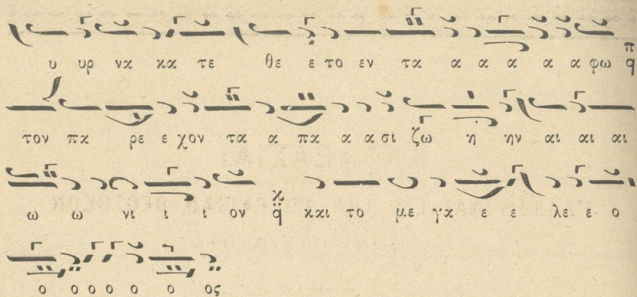 υ υρ να κα τε θε ε το εν τα α α α α α φω π q
τον πα ρε ε χον τα α πα α α σι ζω η ην αι αι αι
ω ω νι ι ι ον q και το με γα ε ε λε ε ο
ο ο ο ο ο ο ος